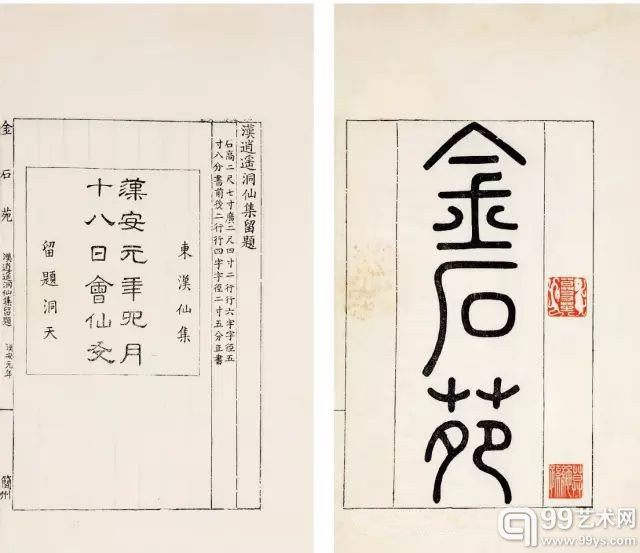 金石苑
漢逍遙洞仙集留題
石高二尺七寸廣二尺四寸二行行六字字徑五
寸八分書前後二行行四字字徑二寸五分正書
東漢仙集
漢安元年四月
十八日會仙友
留題洞天
金石苑 漢逍遙洞仙集留題 漢安元年 簡州
99艺术网
www.99ys.com